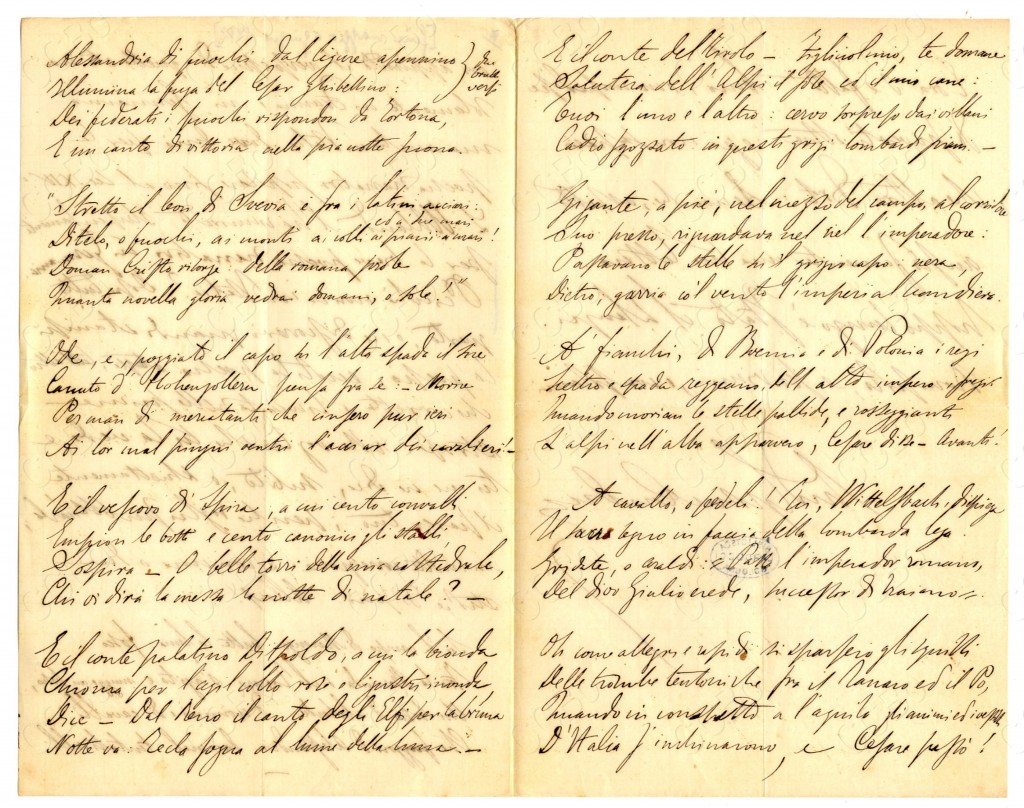 Alessandria di fuochi dal ligure apennino } Due
Illumina la fuga del Cesar ghibellino: brutti versi
Dei federati i fuochi rispondon da Tortona,
E un canto di vittoria nella pia notte suona.
"Stretto il leon di Svevia è fra i latini acciari:
ed a due mari
Ditelo, o fuochi, ai monti ai colli ai piani a mari!
Doman Cristo risorge: della romana prole
Quanta novella gloria vedrai domani, o sole!"
Ode, e, poggiato il capo su l'alta spada, il sire
Canuto d'Hohenzollern pensa fra sè: - Morire
Per man di mercatanti che cinsero pur ieri
Ai lor mal pingui ventri l'acciar dei cavalieri! -
E il vescovo di Spira, a cui cento convalli
Empion le botti e cento canonici gli stalli,
Sospira - O belle torri della mia cattedrale,
Chi vi dirà la messa la notte di natale? -
E il conte palatino Ditpoldo, a cui la bionda
Chioma per l'agil collo rose e ligustri inonda,
Dice - Dal Reno il canto degli Elfi per la bruna
Notte va: Tecla sogna al lume della luna. -
E il conte del Tirolo - Figliuol mio, te domane
Saluterà dell'Alpi il sole ed il mio cane:
Tuoi l'uno e l'altro: cervo sorpreso dai villani
Cadrò sgozzato in questi grigi lombardi piani. -
Gigante, a piè, nel mezzo del campo, al corridore
Suo presso, riguardava nel ciel l'imperadore:
Passavano le stelle su 'l grigio capo: nera,
Dietro, garria co'l vento l'imperial bandiera.
A' fianchi, di Boemia e di Polonia i regi
Scettro e spada reggeano, dell'alto impero i fregi.
Quando morian le stelle pallide, e rosseggianti
L'alpi nell'alba apparvero, Cesare disse - Avanti!
A cavallo, o fedeli! Tu, Wittelsbach, dispiega
Il sacro segno in faccia della lombarda lega.
Gridate, o araldi: Passa l'imperador romano,
Del divo Giulio erede, successor di Traiano -.
Oh come allegri e rapidi si sparsero gli squilli
Delle trombe teutoniche fra il Tanaro ed il Po,
Quando in cospetto a l'aquila gli animi ed i vessilli
D'Italia s'inchinarono, e Cesare passò!